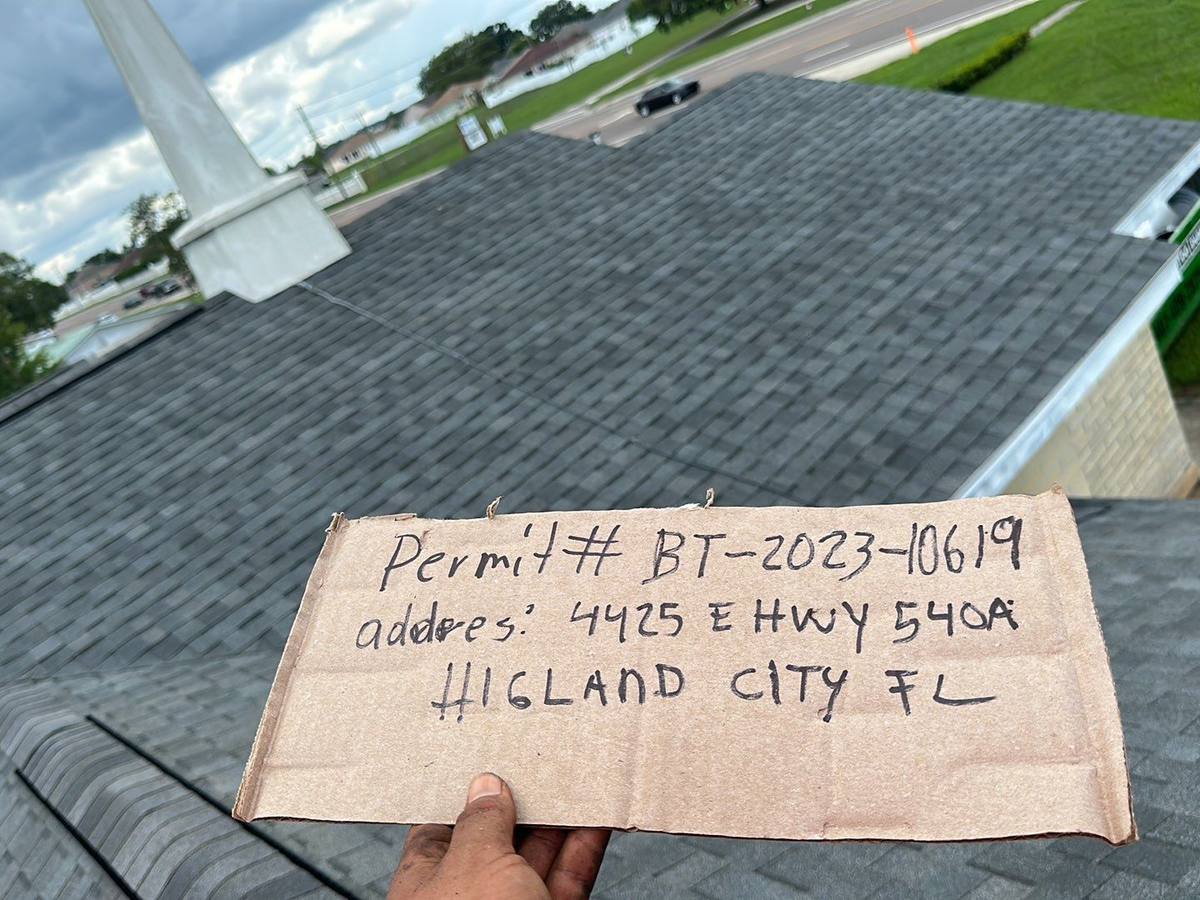 Permit# BT-2023-10619
addres: 4425 E HWY 540A
HIGLAND CITY FL